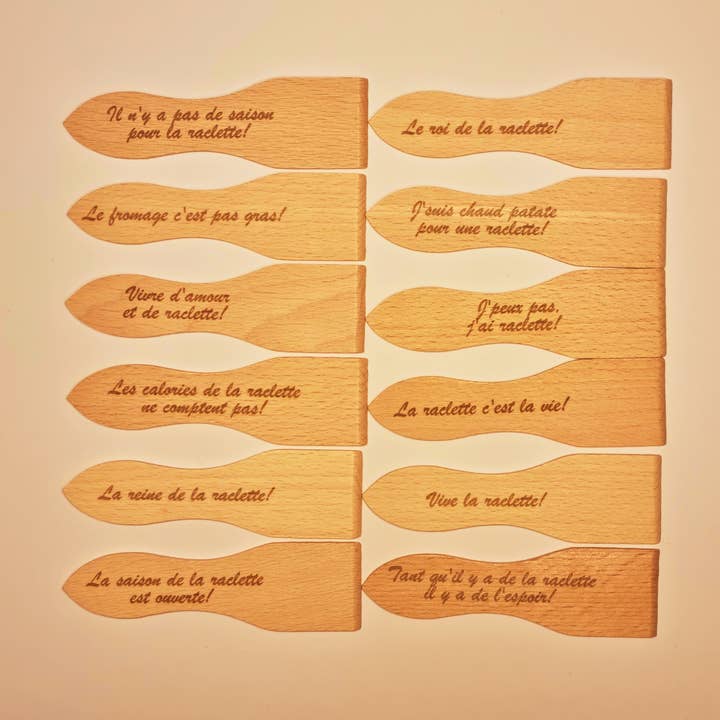 Il n'y a pas de saison
pour la raclette!
Le fromage c'est pas gras!
Vivre d'amour
et de raclette!
Les calories de la raclette
ne comptent pas!
La reine de la raclette!
La saison de la raclette
est ouverte!
Le roi de la raclette!
J'suis chaud patate
pour une raclette!
J'peux pas,
j'ai raclette!
La raclette c'est la vie!
Vive la raclette!
Tant qu'il y a de la raclette
il y a de l'espoir!